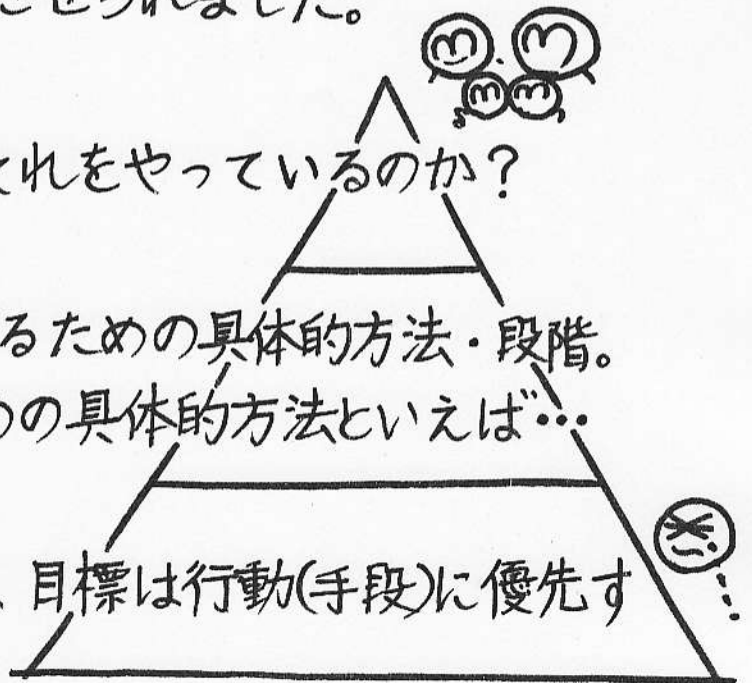 せられました。
れをやっているのか？
るための具体的方法・段階。
の具体的方法といえば…
、目標は行動(手段)に優先す